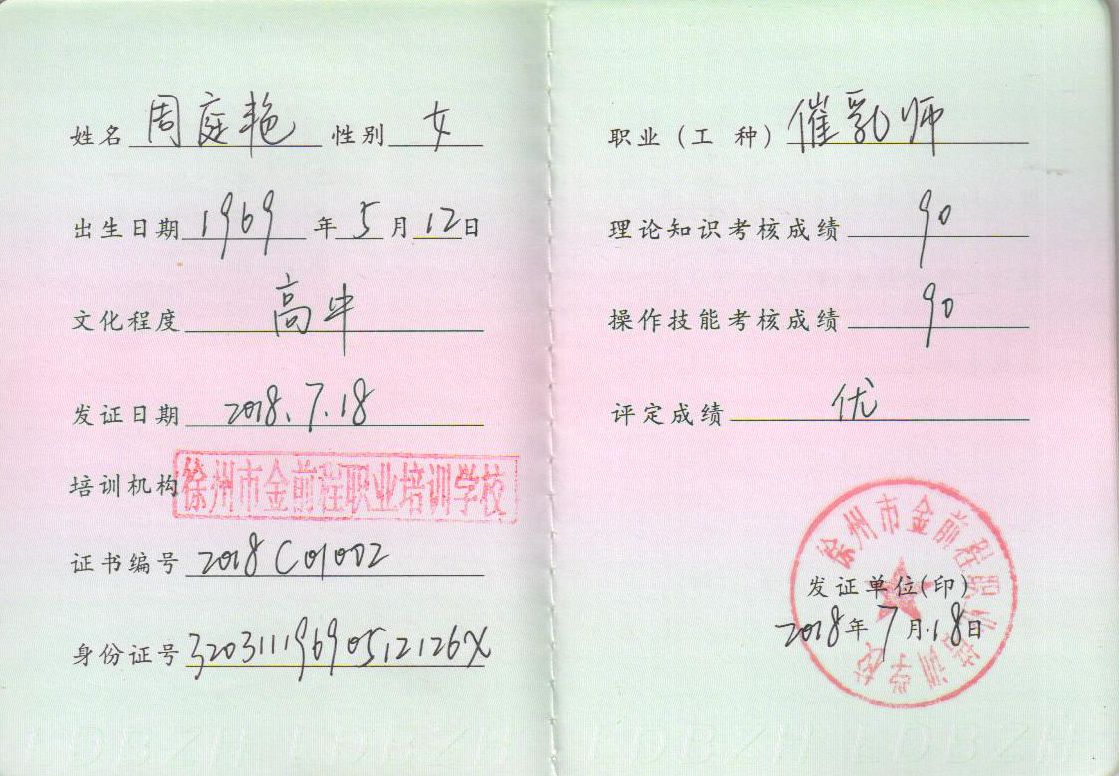 姓名 周庭艳 性别 女
出生日期 1969 年 5 月 12 日
文化程度 高中
发证日期 2018.7.18
培训机构 徐州市金前程职业培训学校
证书编号 2018C01002
身份证号 32031119690512126X
职业(工 种) 催乳师
理论知识考核成绩 90
操作技能考核成绩 90
评定成绩 优
徐州市金前程职业培训学校
发证单位(印)
2018年7月18日
LDBZH LDBZH
LDBZH LDBZH